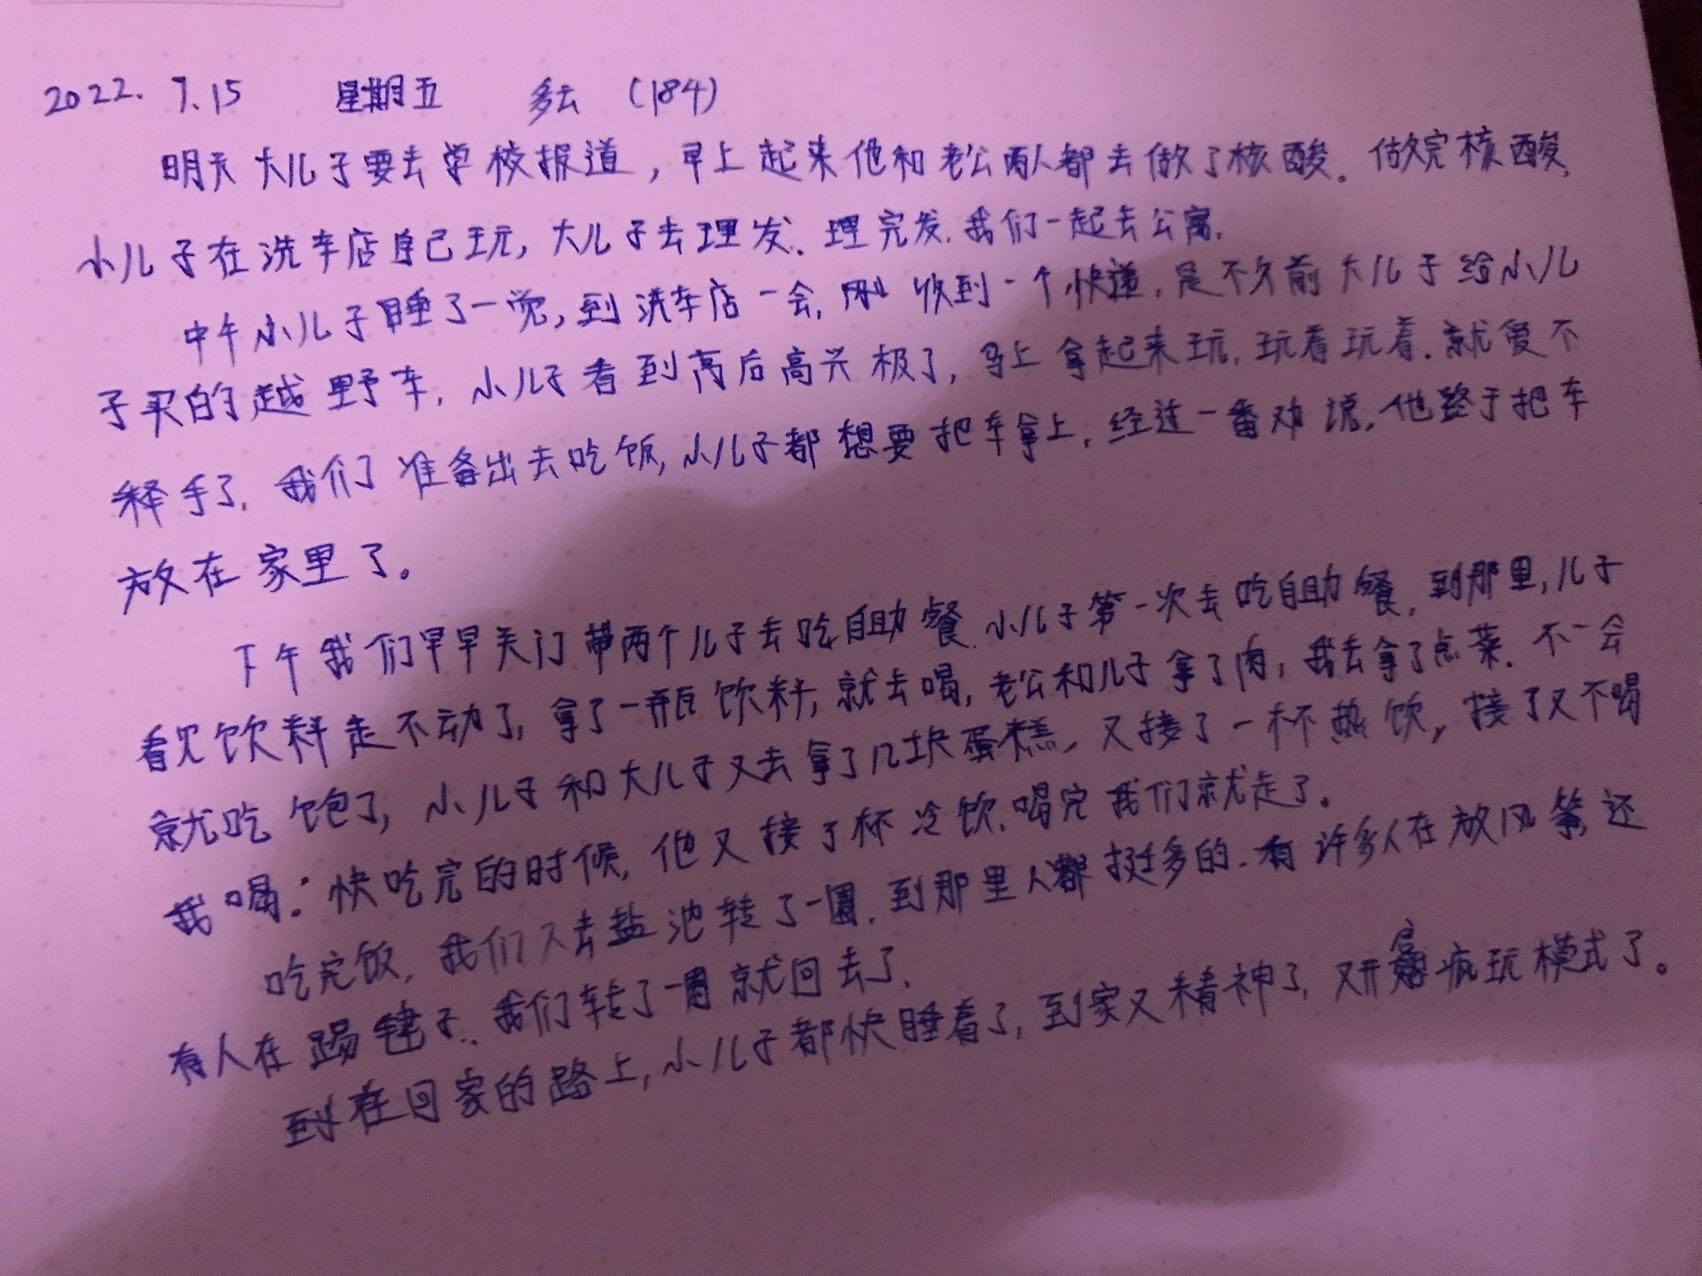 2022. 7.15 星期五 多云 (184)
明天大儿子要去学校报道，早上起来他和老公两人都去做了核酸。做完核酸，
小儿子在洗车店自己玩，大儿子去理发. 理完发. 我们一起去公寓.
中午小儿子睡了一觉，到洗车店一会, 收到一个快递, 是不久前大儿子给小儿
子买的越野车, 小儿子看到高后高兴极了, 马上拿起来玩, 玩着玩着. 就爱不
释手了, 我们准备出去吃饭, 小儿子都想要把车拿上, 经过一番劝说, 他终于把车
放在家里了。
下午我们早早关门带两个儿子去吃自助餐. 小儿子第一次去吃自助餐, 到那里, 儿子
看见饮料走不动了, 拿了一瓶饮料, 就去喝, 老公和儿子拿了肉, 我去拿了点菜. 不一会
就吃饱了, 小儿子和大儿子又去拿了几块蛋糕, 又接了一杯热饮, 接了又不喝
我喝. 快吃完的时候, 他又接了杯冷饮. 喝完我们就走了。
吃完饭, 我们又去盐池转了一圈. 到那里人都挺多的. 有许多人在放风筝, 还
有人在踢毽子. 我们转了一圈就回去了.
到在回家的路上, 小儿子都快睡着了, 到家又精神了, 又开启疯玩模式了。